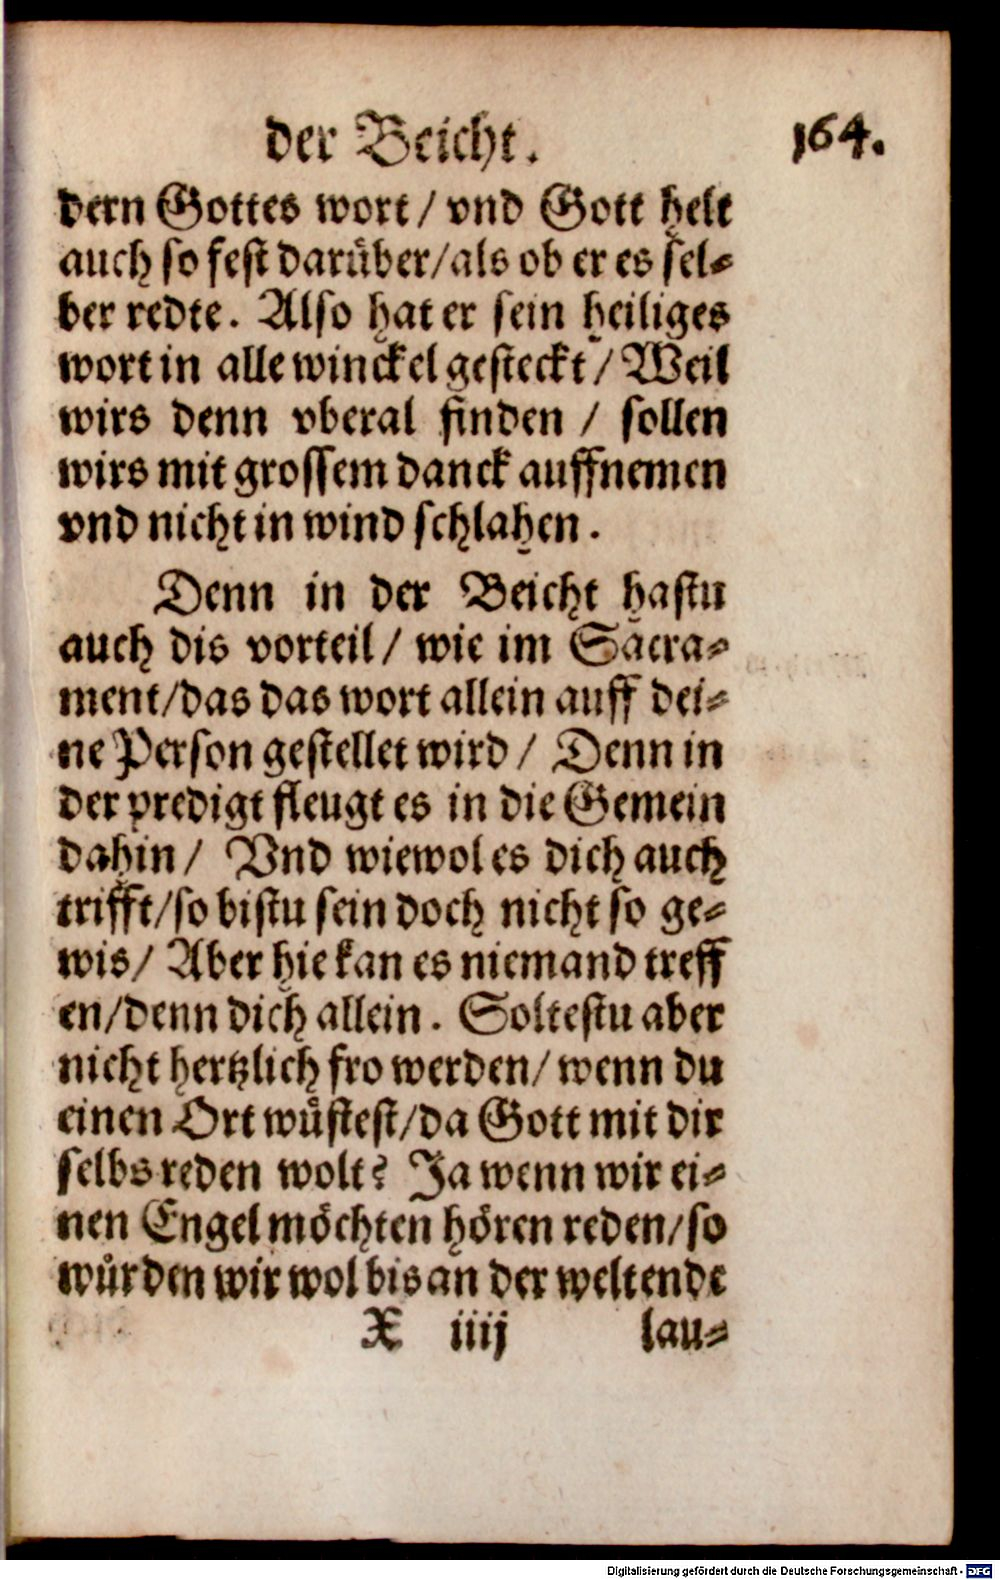 der Beicht.
164.
dern Gottes wort / vnd Gott helt
auch so fest darüber/als ob er es sel⸗
ber redte. Also hat er sein heiliges
wort in alle winckel gesteckt / Weil
wirs denn vberal finden / sollen
wirs mit grossem danck auffnemen
vnd nicht in wind schlahen.
Denn in der Beicht hastu
auch dis vorteil / wie im Sacra⸗
ment/das das wort allein auff dei⸗
ne Person gestellet wird / Denn in
der predigt fleugt es in die Gemein
dahin / Vnd wiewol es dich auch
trifft/so bistu sein doch nicht so ge⸗
wis / Aber hie kan es niemand treff
en/denn dich allein. Soltestu aber
nicht hertzlich fro werden/ wenn du
einen Ort wüstest/da Gott mit dir
selbs reden wolt? Ja wenn wir ei⸗
nen Engel möchten hören reden/so
würden wir wol bis an der welt ende
X iiij lau⸗
Digitalisierung gefördert durch die Deutsche Forschungsgemeinschaft - DFG